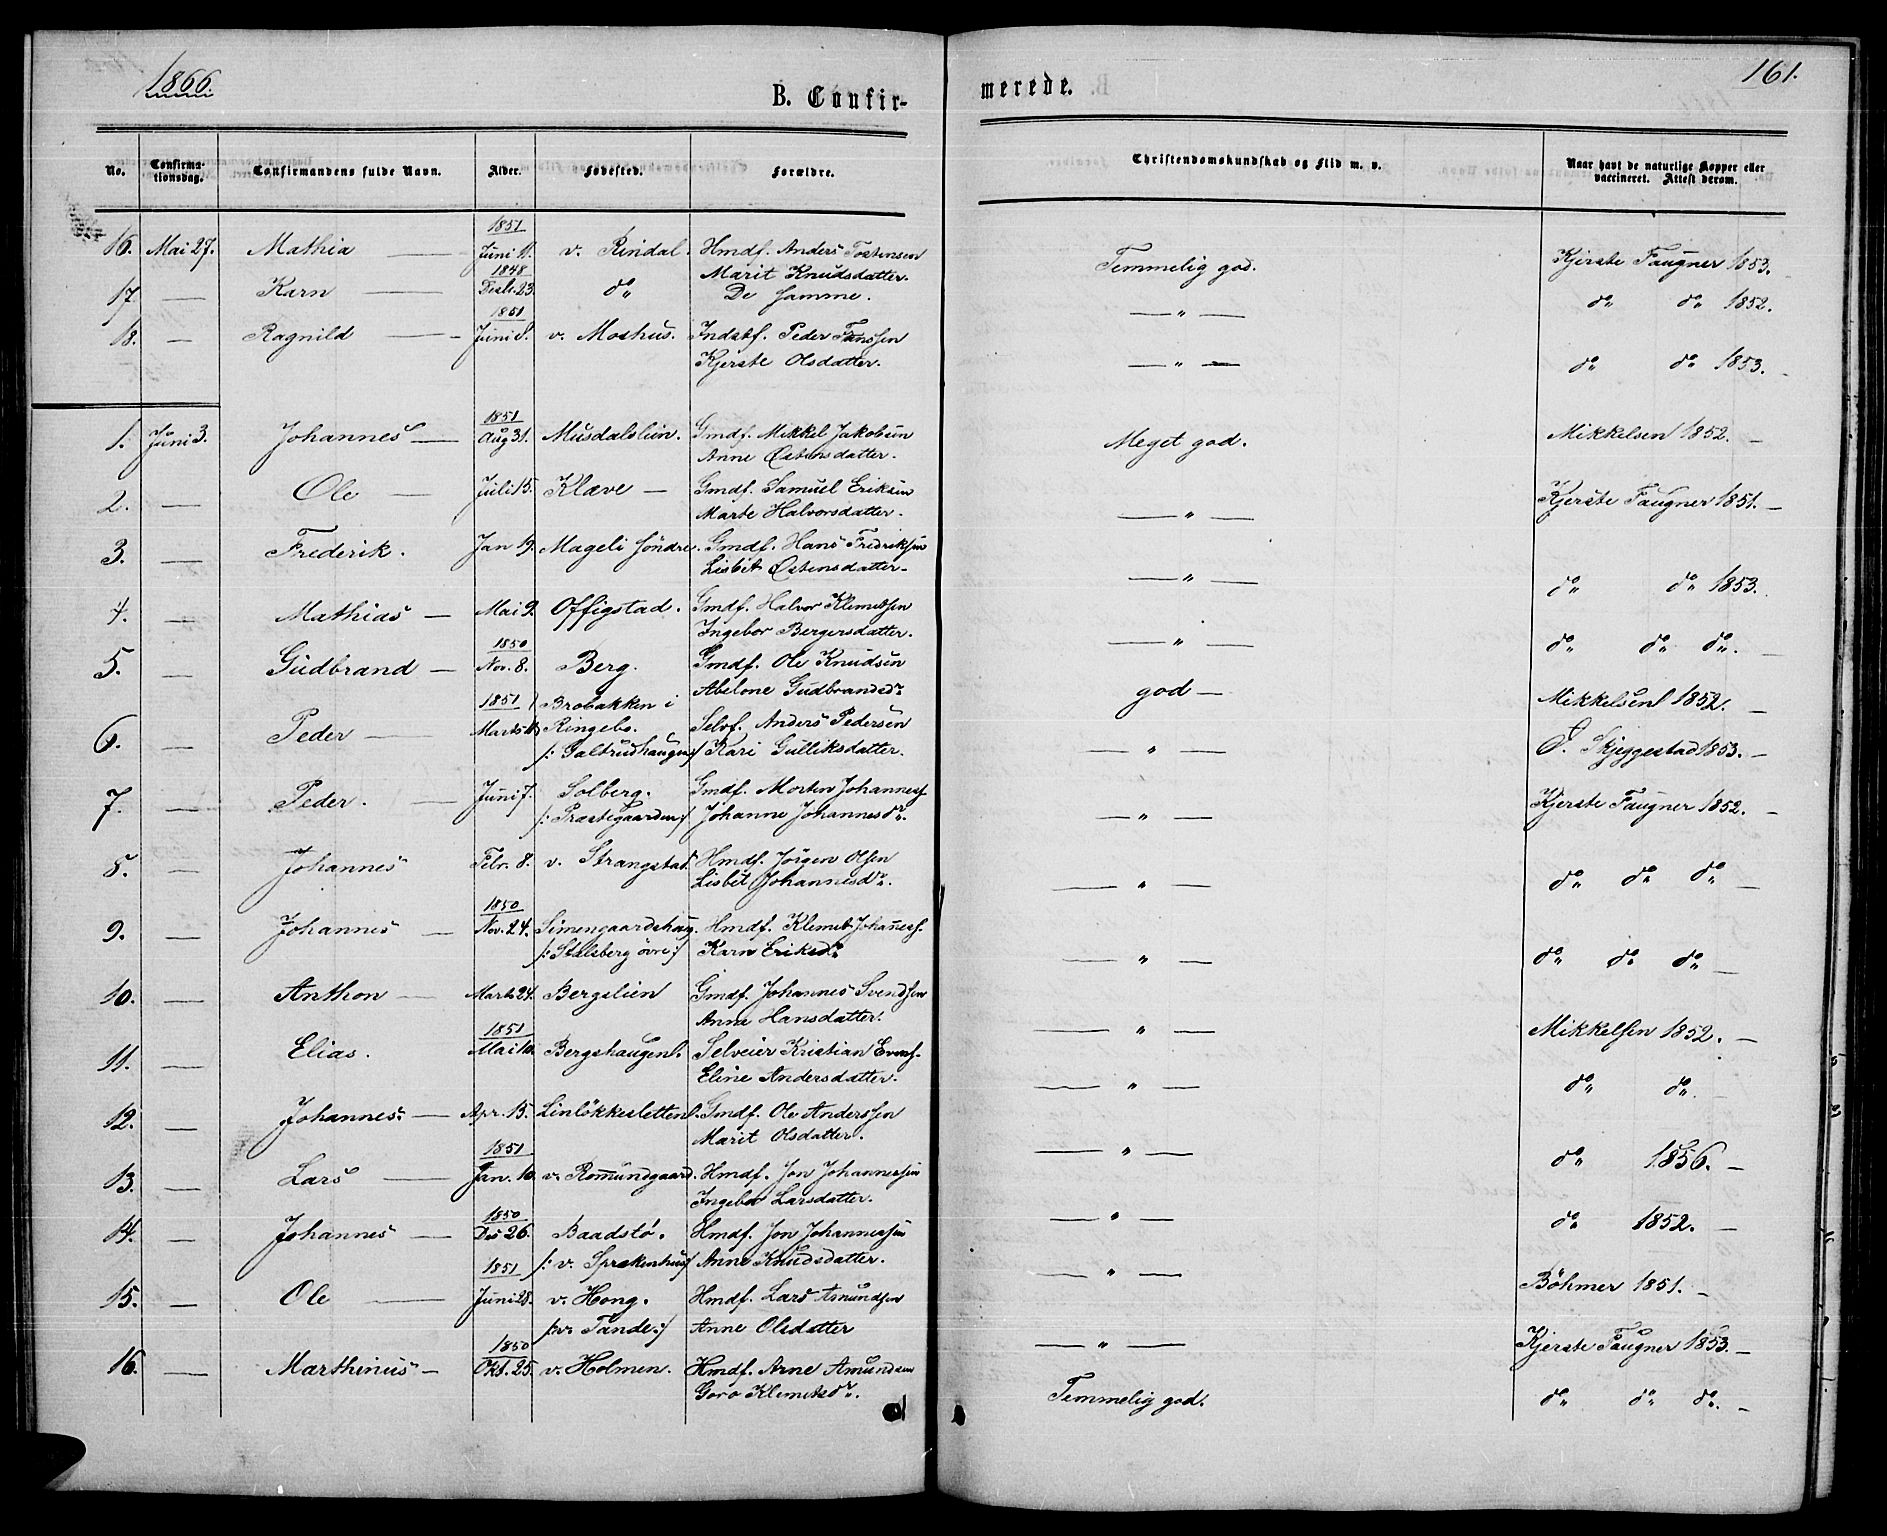 1866.
B. Confir-
merede.
161.
No.
Confirma-
tionsdag.
Confirmandens fulde Navn.
Alder.
Fødested.
Forældre.
Christendomskundskab og Flid m. v.
Naar havt de naturlige Kopper eller
vaccineret. Attest derom.
1851
16. Mai 27. Mathia — Juni 11. v. Rindal. Hmdf. Anders Tostensen
Marit Knudsdatter.
Temmelig god.
Kjerste Faugner 1853.
1848
17 — Karn — Desbr. 23. do De samme.
— " —
do do 1852.
1851
18. — Ragnild — Juni 8. v. Moshus. Indstf. Peder Franssen
Kjerste Olsdatter.
— " —
do do 1853.
1851
1. Juni 3. Johannes — Aug 31. Musdalslien. Gmdf. Mikkel Jakobsen
Anne Østensdatter.
Meget god.
Mikkelsen 1852. —
2. — Ole — Juli 15. Klæve — Gmdf. Samuel Eriksen
Marte Halvorsdatter.
— " —
Kjerste Faugner 1851. —
3. — Frederik. Jan 19. Mageli søndre. Gmdf. Hans Fredriksen
Lisbet Østensdatter.
— " —
do do 1853.
4. — Mathias — Mai 9. Offigstad. Gmdf. Halvor Klemetsen
Ingebor Bergersdatter.
— " —
do do do. —
1850
5. — Gudbrand — Nov. 8. Berg. Gmdf. Ole Knudsen
Abelone Gudbrandsdr
god —
Mikkelsen 1852. —
1851 Brobakken i
6. — Peder — Marts Ringebo. Selvf. Anders Pedersen
/: Galtrudhaugen :/ Kari Gulliksdatter.
— " —
O. Skjeggestad 1853. —
7. — Peder. — Juni 7. Solberg. Gmdf. Morten Johanness.
/: Præstegaarden :/ Johanne Johannesdr.
— " —
Kjerste Faugner 1852. —
8. — Johannes Febr. 8. v. Strangstad. Hmdf. Jørgen Olsen
Lisbet Johannesdr.
— " —
do do do —
1850
9. — Johannes — Nov. 24. Simengaardshaug. Hmdf. Klemet Johaness.
/: Stalsberg øvre :/ Karn Eriksdr
— " —
do do do —
10. — Anthon — Marts 24. Bergslien Gmdf. Johannes Svendsen
Anne Hansdatter.
— " —
Mikkelsen 1852. —
1851
11. — Elias. Mai 10. Bergshaugen. Selveier Kristian Evens.
Eline Andersdatter.
— " —
do do.
12. — Johannes. — Apr. 15. Linløkkesletten. Gmdf. Ole Anderssen
Marit Olsdatter.
— " —
do 1856. —
1851
13. — Lars — Jan. 10. v. Romundgaard. Hmdf. Jon Johannessen
Ingebor Larsdatter.
— " —
do 1852. —
1850
14. — Johannes — Des 26. Baadstø. Hmdf. Jon Johannessen
/: v. Sprakenhus :/ Anne Knudsdatter.
— " —
Böhmer 1851. —
1851
15. — Ole — Juni 28. v. Hong. Hmdf. Lars Amundsen
/: v. Tande :/ Anne Olsdatter
— " —
Kjerste Faugner 1853. —
1850
16. — Marthinus — Okt. 25. v. Holmen. Hmdf. Arne Amundsen
Goro Klemetsdr.
Temmelig god.
do do do. —